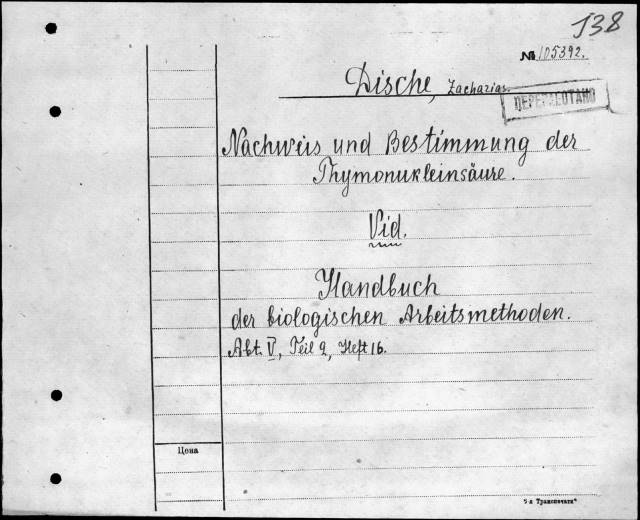 138
№ 105392.
Dische, Zacharias.
Nachweis und Bestimmung der
Thymonukleinsäure.
Vid.
Handbuch
der biologischen Arbeitsmethoden.
Abt. V, Teil 2, Heft 16.
Цена